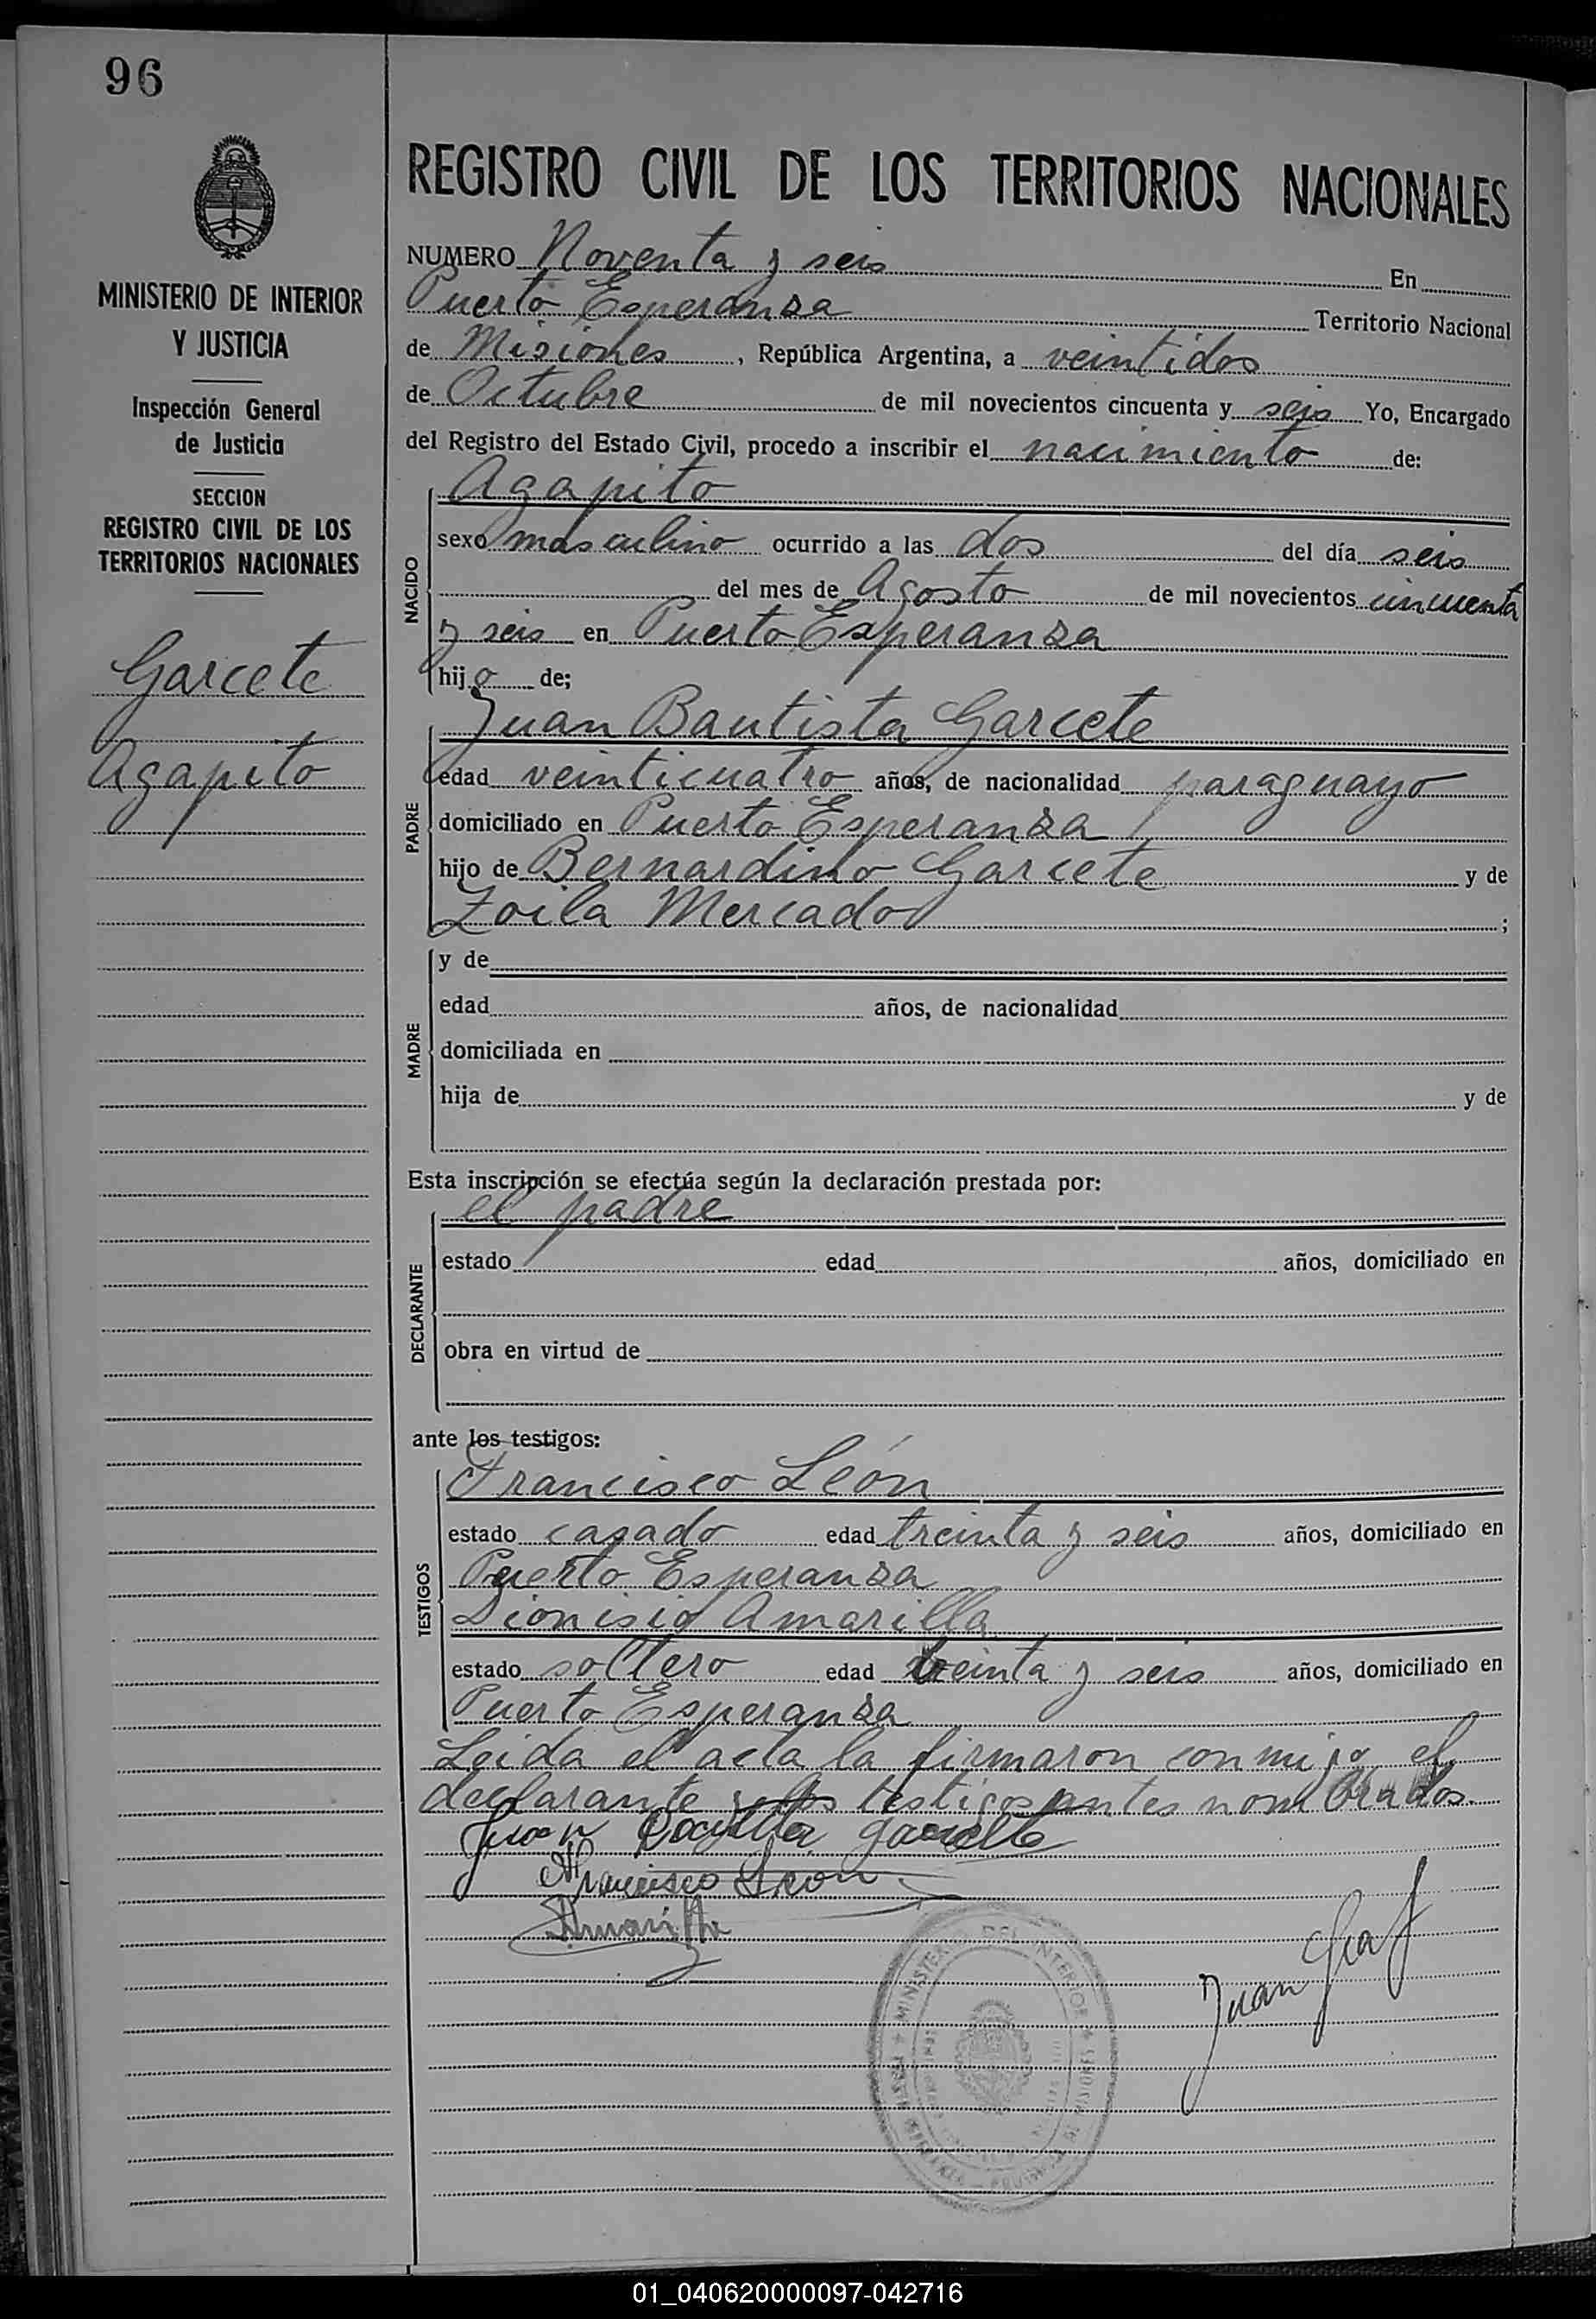 96
MINISTERIO DE INTERIOR
Y JUSTICIA
Inspección General
de Justicia
SECCION
REGISTRO CIVIL DE LOS
TERRITORIOS NACIONALES
Garcete
Agapito
REGISTRO CIVIL DE LOS TERRITORIOS NACIONALES
NUMERO Noventa y seis En
Puerto Esperanza Territorio Nacional
de Misiones, República Argentina, a veintidos
de Octubre de mil novecientos cincuenta y seis Yo, Encargado
del Registro del Estado Civil, procedo a inscribir el nacimiento de:
Agapito
NACIDO
sexo masculino ocurrido a las dos del día seis
del mes de Agosto de mil novecientos cincuenta
y seis en Puerto Esperanza
hijo de;
Juan Bautista Garcete
PADRE
edad veinticuatro años, de nacionalidad paraguayo
domiciliado en Puerto Esperanza
hijo de Bernardino Garcete y de
Zoila Mercado ;
MADRE
y de
edad años, de nacionalidad
domiciliada en
hija de y de
Esta inscripción se efectúa según la declaración prestada por:
el padre
DECLARANTE
estado edad años, domiciliado en
obra en virtud de
ante los testigos:
Francisco León
TESTIGOS
estado casado edad treinta y seis años, domiciliado en
Puerto Esperanza
Dionisio Amarilla
estado soltero edad treinta y seis años, domiciliado en
Puerto Esperanza
Leida el acta la firmaron conmigo el
declarante y los testigos antes nombrados.
Juan Garcete
Francisco Leon
Amarilla
Juan Graf
MINISTERIO DEL INTERIOR
01_040620000097-042716